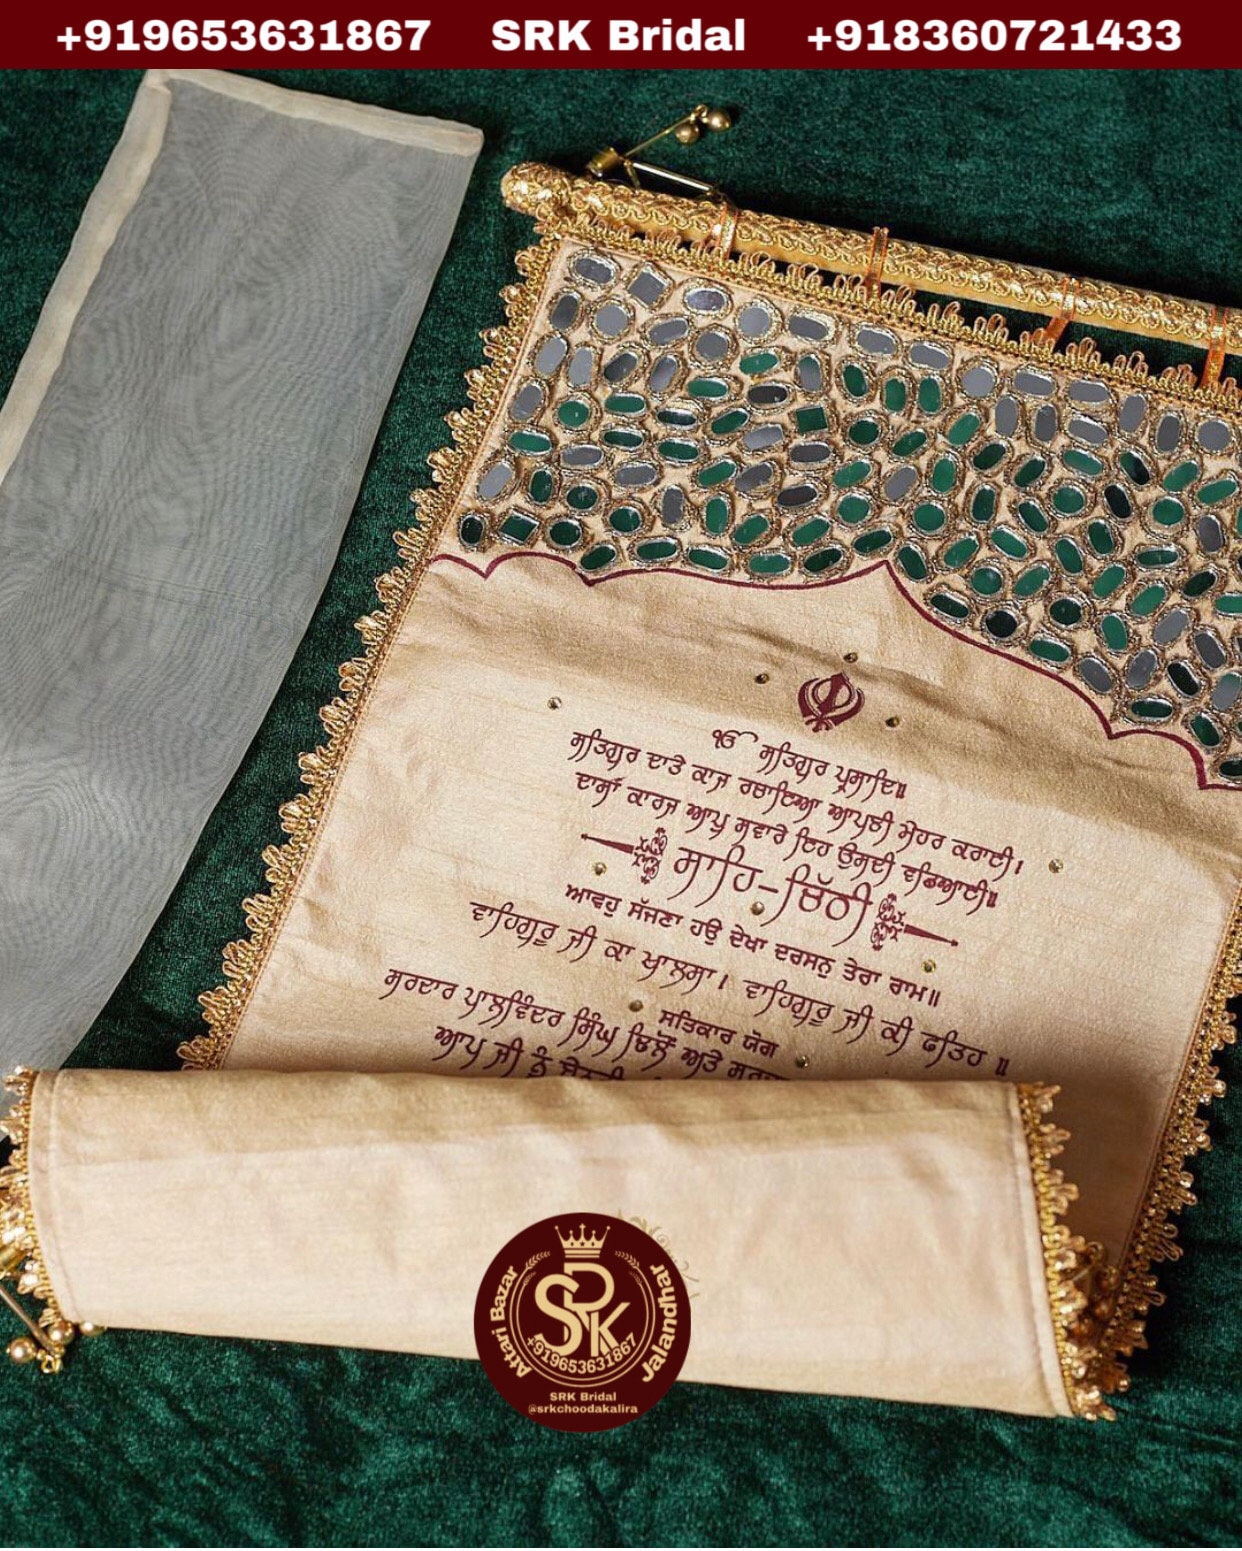 +919653631867 SRK Bridal +918360721433
ੴ ਸਤਿਗੁਰ ਪ੍ਰਸਾਦਿ॥
ਸਤਿਗੁਰ ਦਾਤੇ ਕਾਜ ਰਚਾਇਆ ਆਪਣੀ ਮੇਹਰ ਕਰਾਈ।
ਦਾਸਾਂ ਕਾਰਜ ਆਪ ਸਵਾਰੇ ਇਹ ਉਸਦੀ ਵਡਿਆਈ॥
ਸਾਹਿ-ਚਿੱਠੀ
ਆਵਹੁ ਸੱਜਣਾ ਹਉ ਦੇਖਾ ਦਰਸਨੁ ਤੇਰਾ ਰਾਮ॥
ਵਾਹਿਗੁਰੂ ਜੀ ਕਾ ਖਾਲਸਾ। ਵਾਹਿਗੁਰੂ ਜੀ ਕੀ ਫਤਿਹ॥
ਸਤਿਕਾਰ ਯੋਗ
ਸਰਦਾਰ ਪਾਲਵਿੰਦਰ ਸਿੰਘ ਢਿਲੋਂ ਅਤੇ
ਆਪ ਜੀ ਨੂੰ
Attari Bazar
Jalandhar
SRK
+919653631867
SRK Bridal
@srkchoodakalira